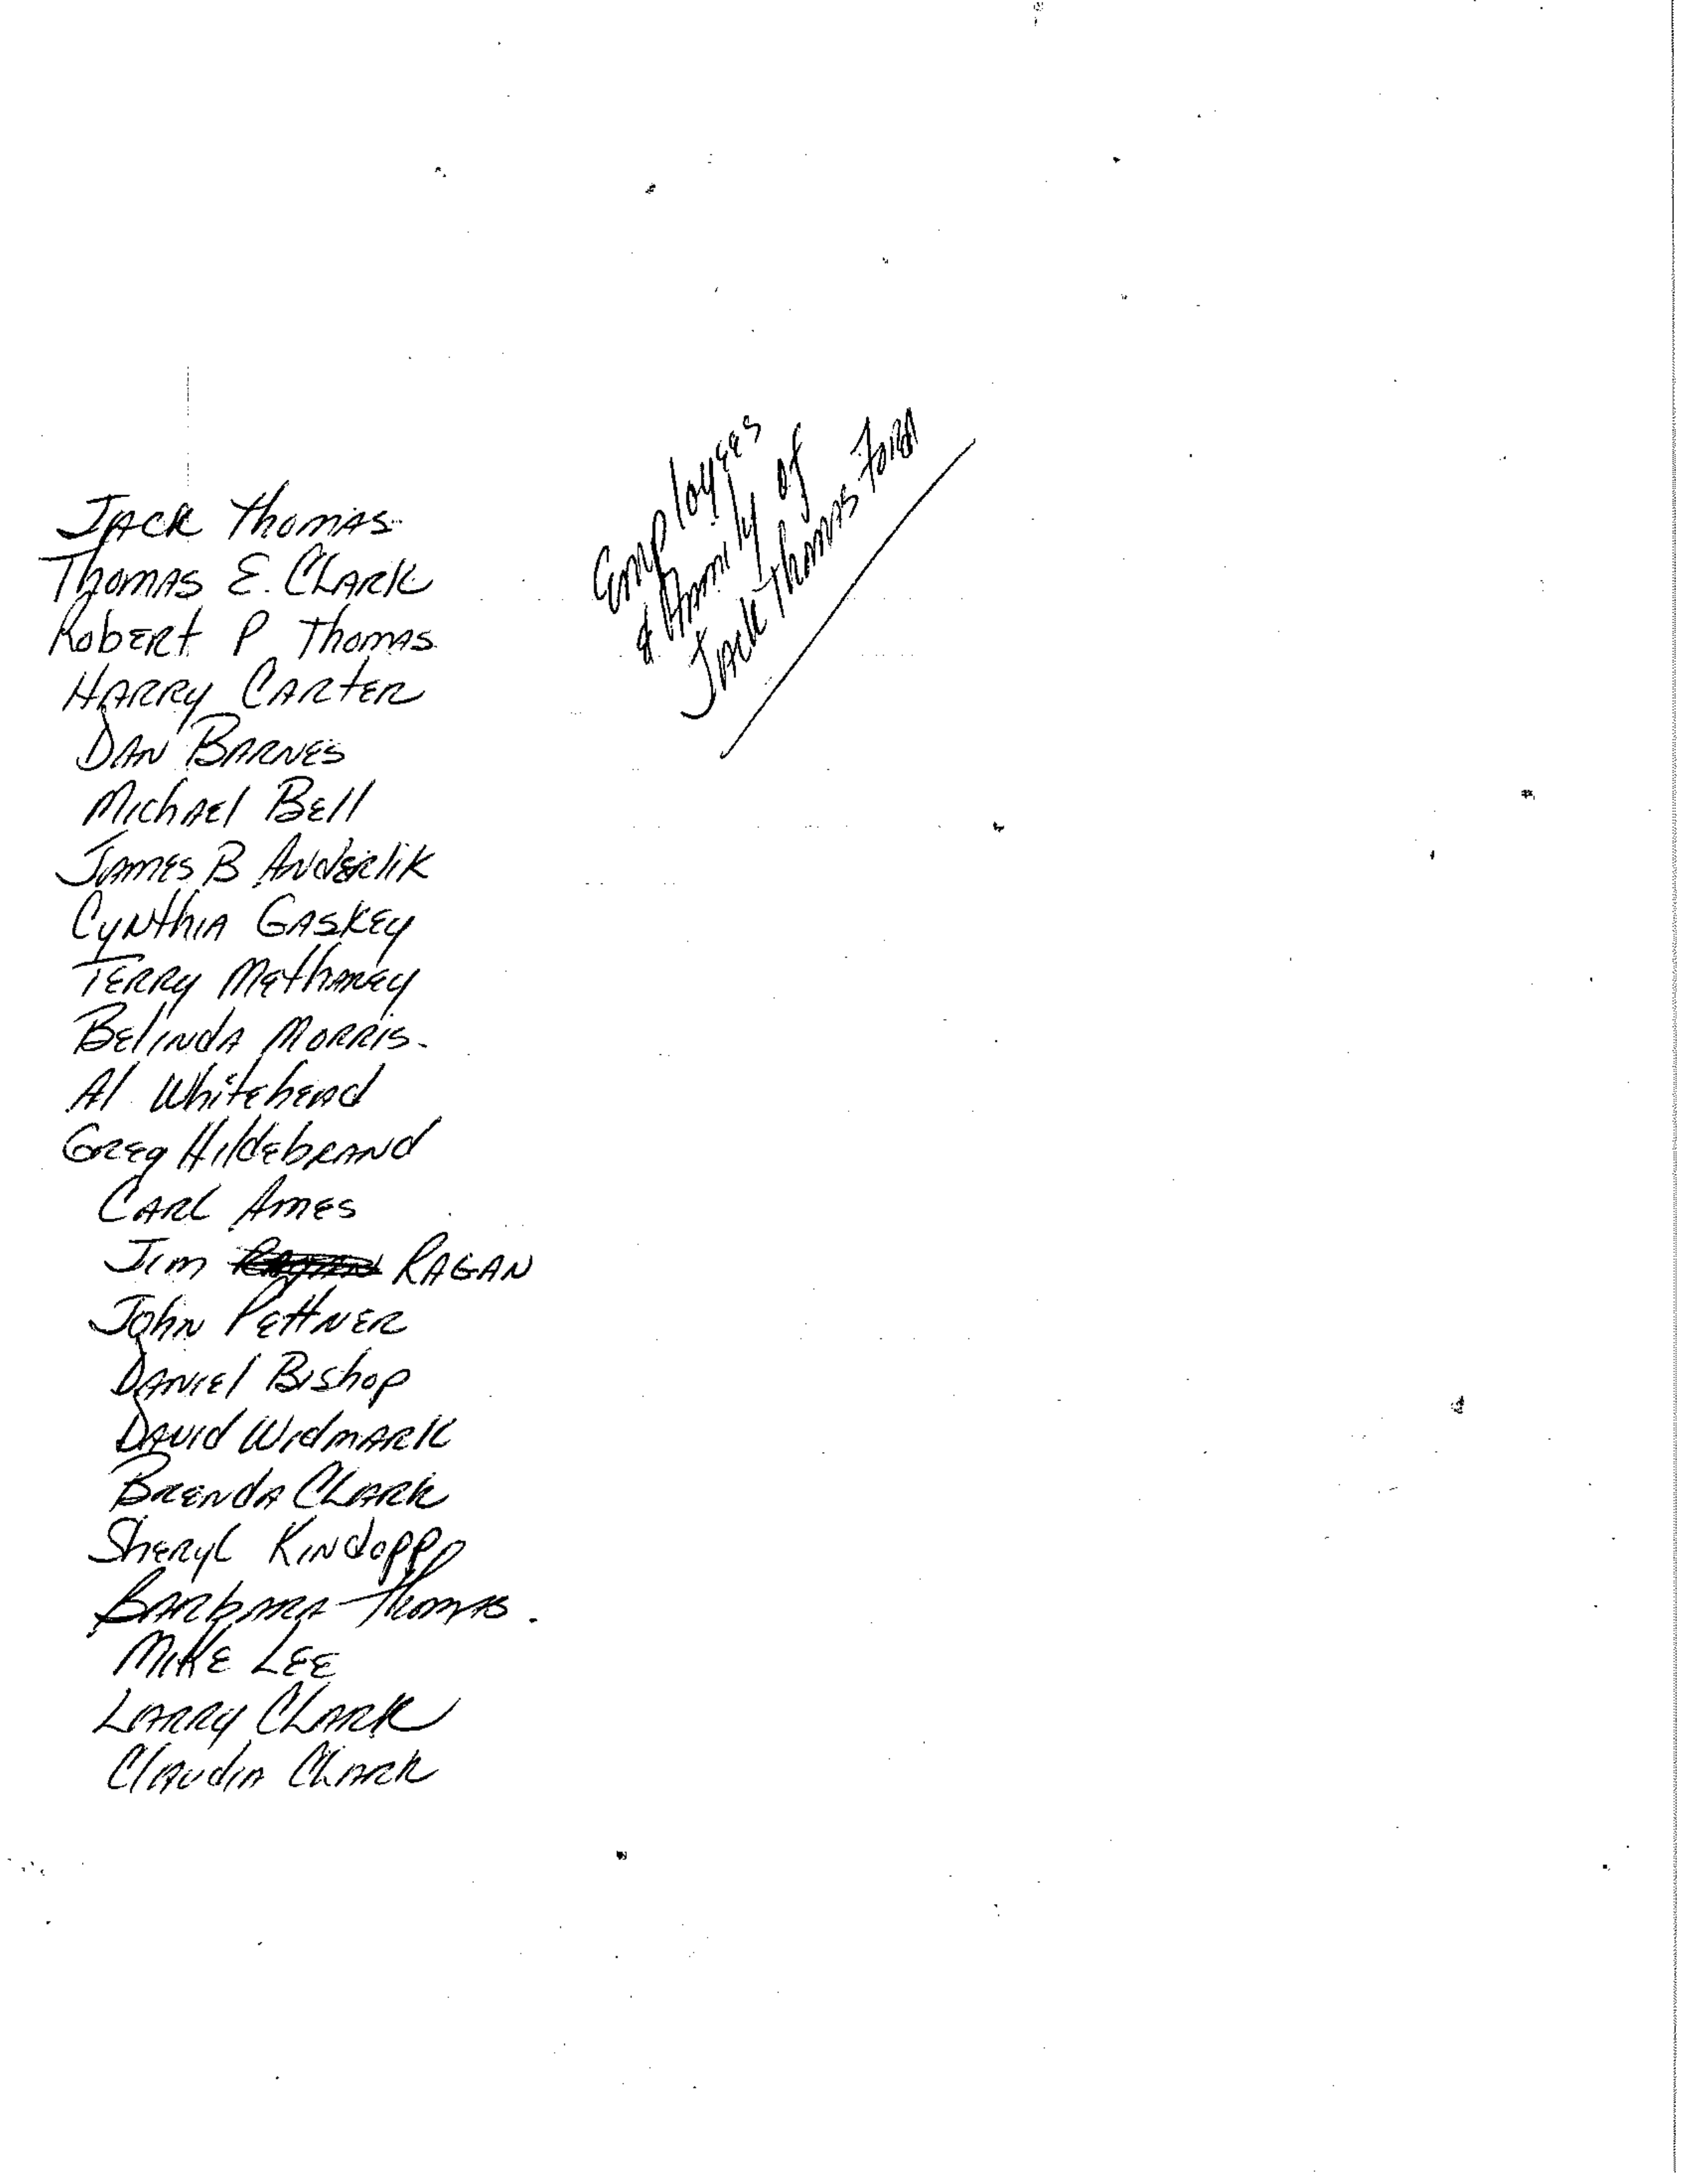 Employees
& Family of
Jack Thomas Ford
Jack Thomas
Thomas E. Clark
Robert P Thomas
Harry Carter
Dan Barnes
Michael Bell
James B Anderlik
Cynthia Gaskey
Terry Methaney
Belinda Morris
Al Whitehead
Greg Hildebrand
Carl Ames
Jim Ragan
John Pettner
Daniel Bishop
David Widmark
Brenda Clark
Sheryl Kindopp
Barbara Thomas.
Mike Lee
Larry Clark
Claudia Clark